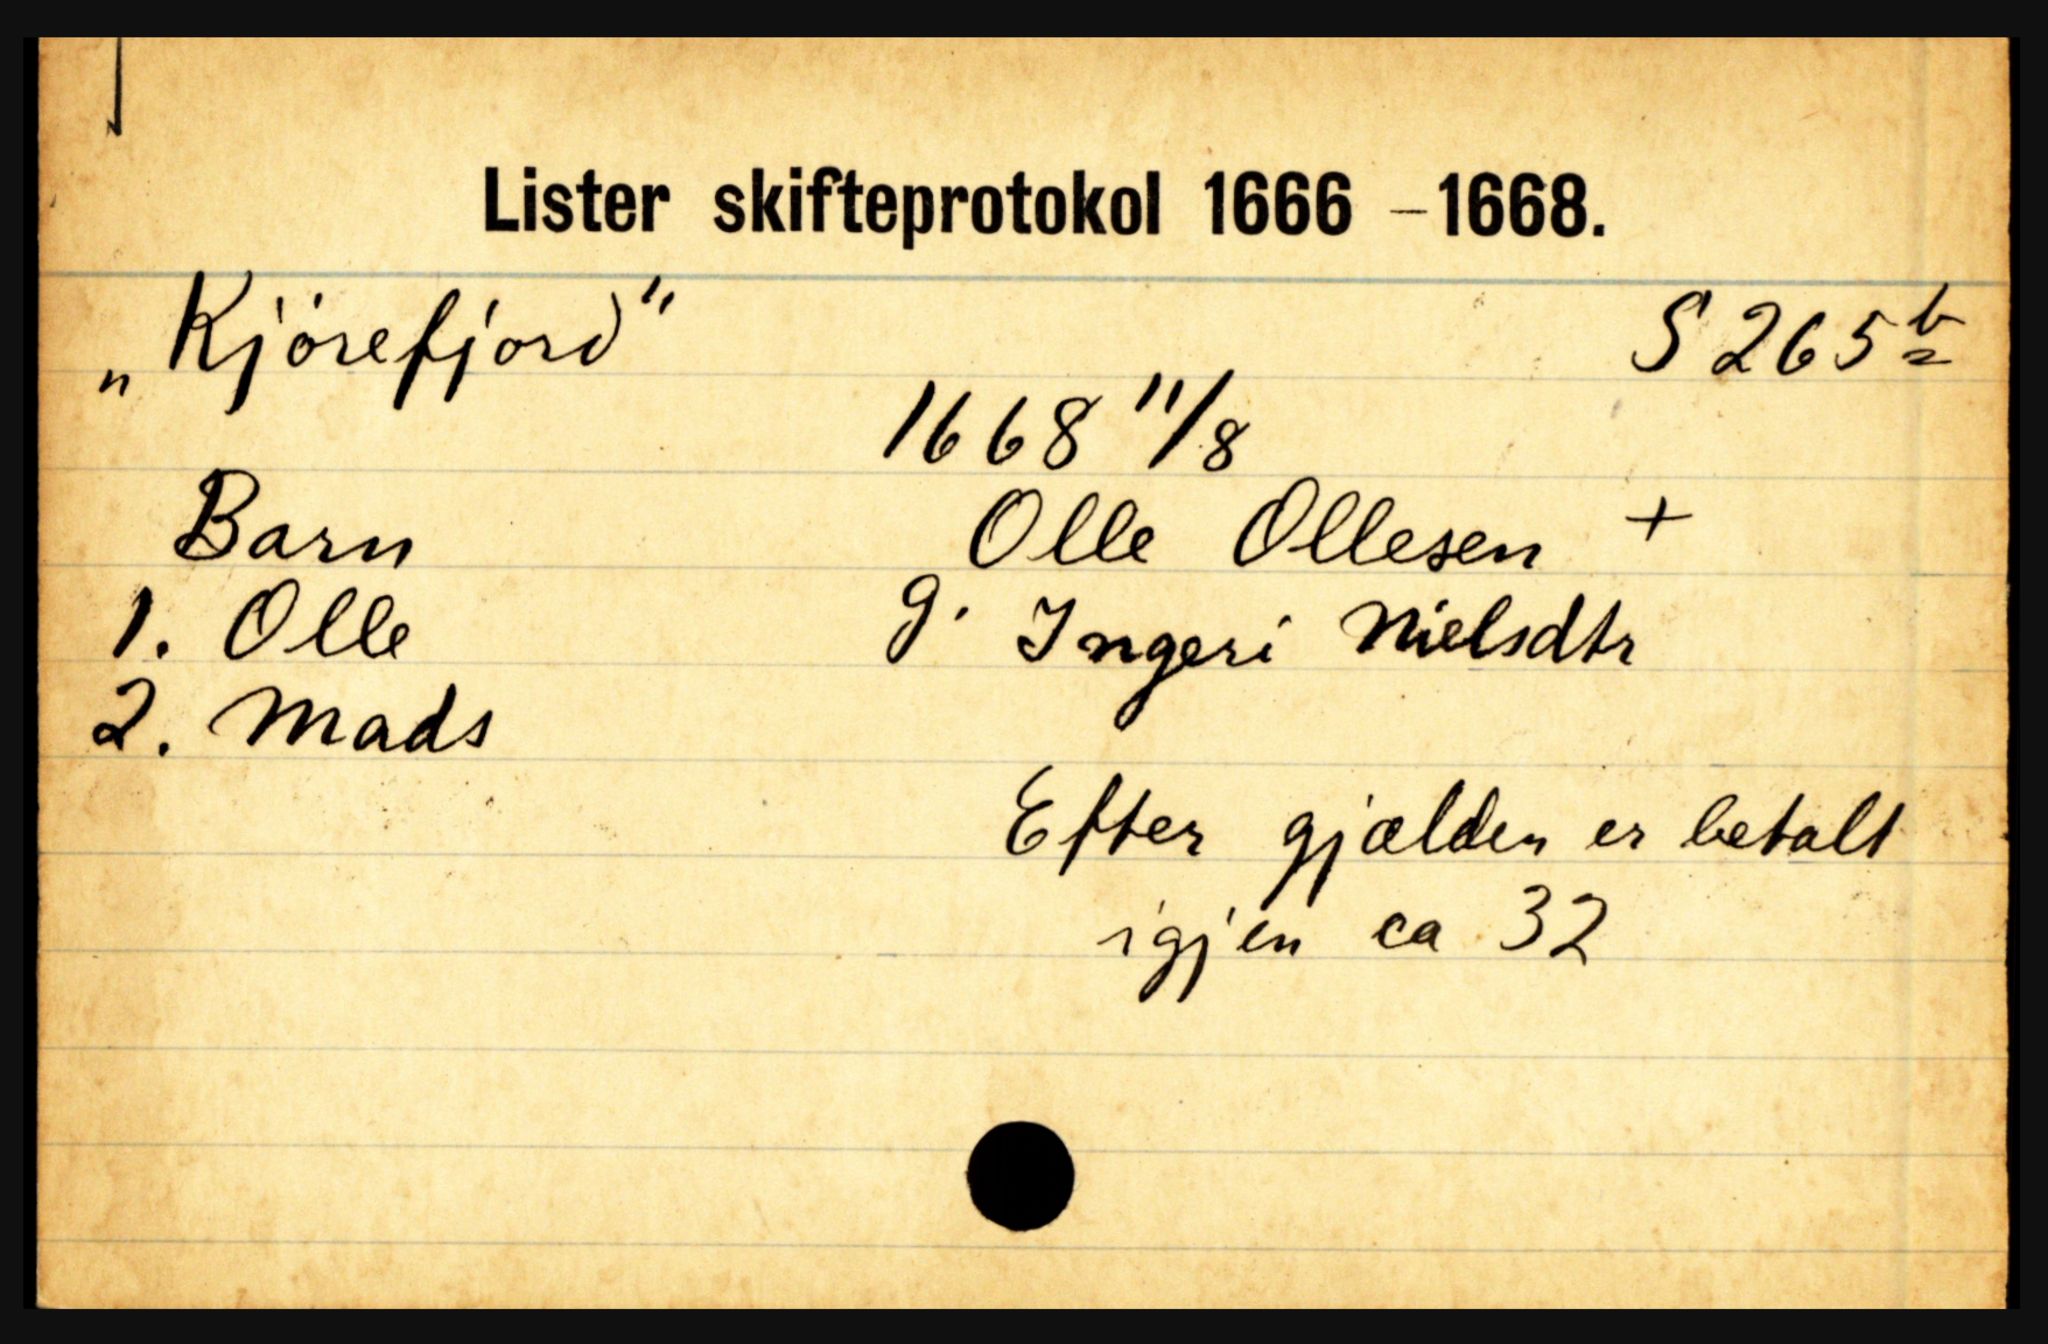 Lister skifteprotokol 1666 - 1668.
„Kjörefjord" S 265 b
1668 11/8
Barn Olle Ollesen +
1. Olle g. Ingeri Nielsdtr
2. Mads
Efter gjælden er betalt
igjen ca 32